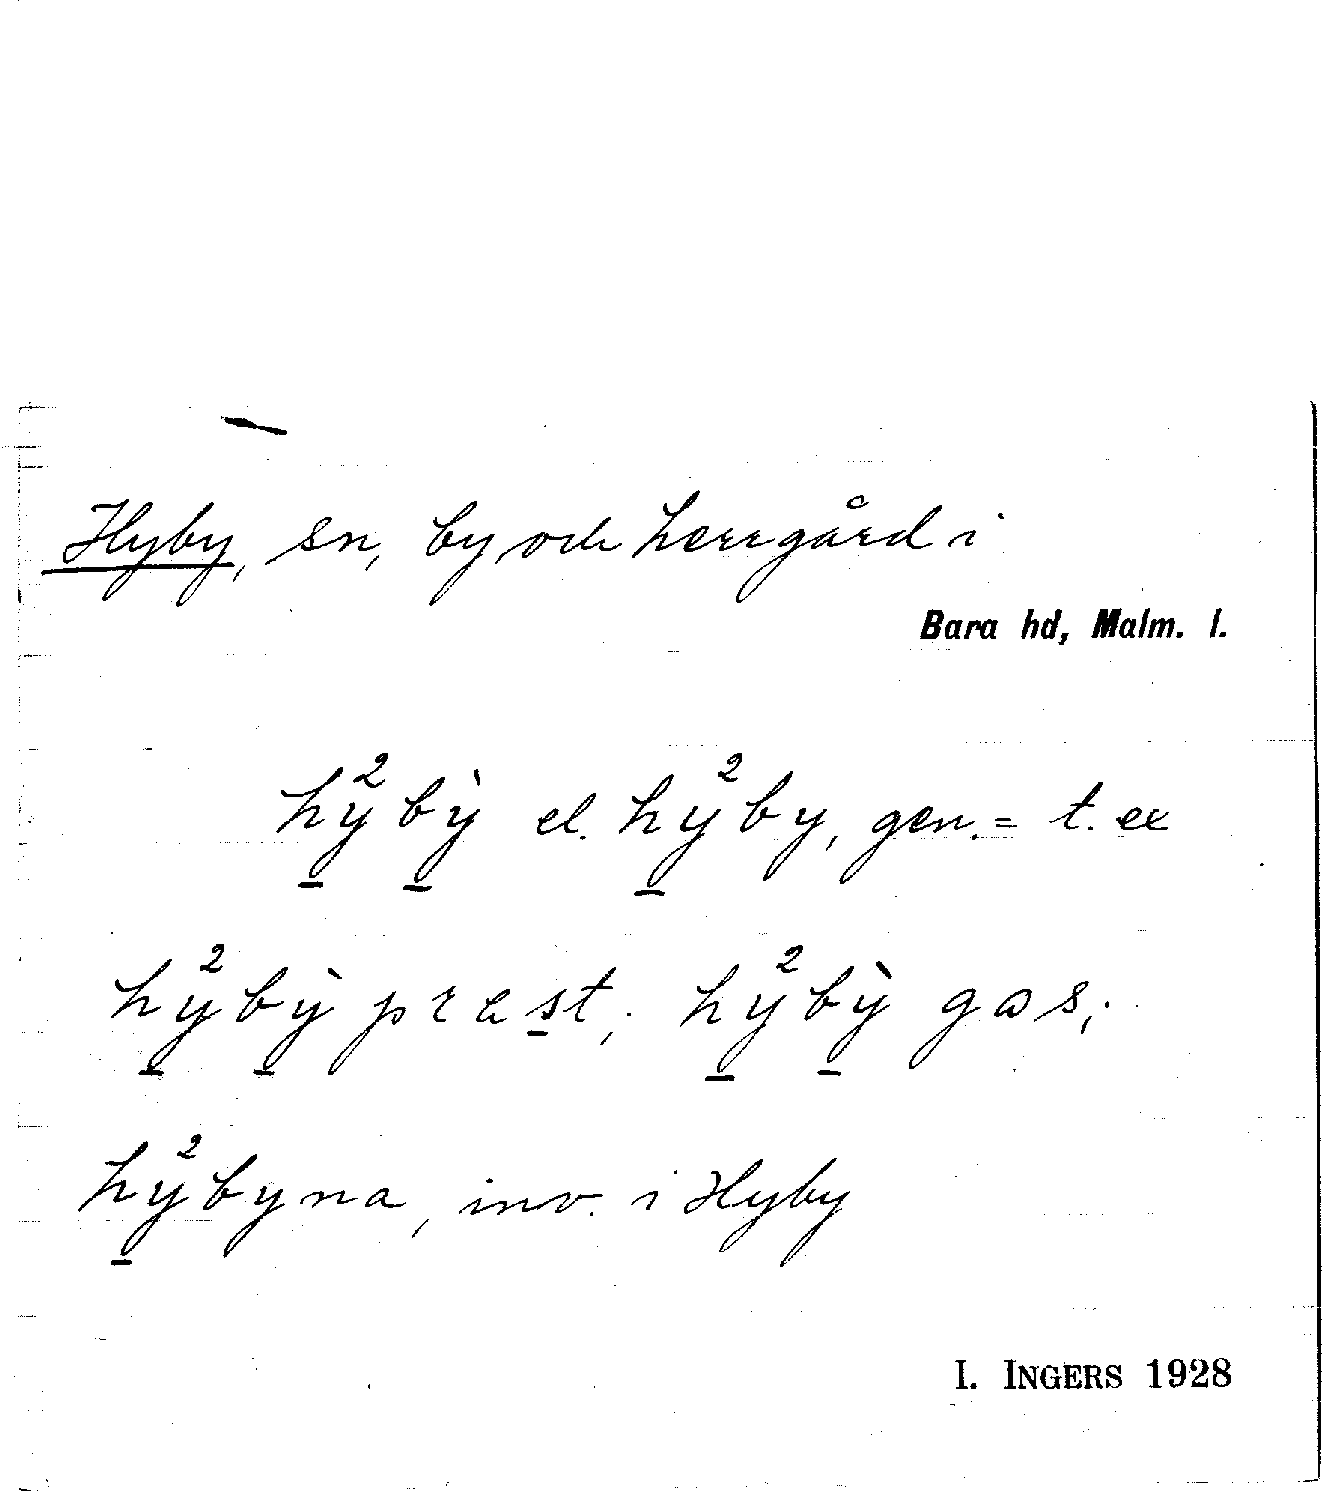 Hyby, sn, by och herrgård i
Bara hd, Malm. l.
hy̱²ḇỳ el. hy̱²by, gen. = t. ex
hy̱²ḇỳ pras̱t; hy̱²ḇỳ gɑs;
hy̱²byna, inv. i Hyby
I. INGERS 1928